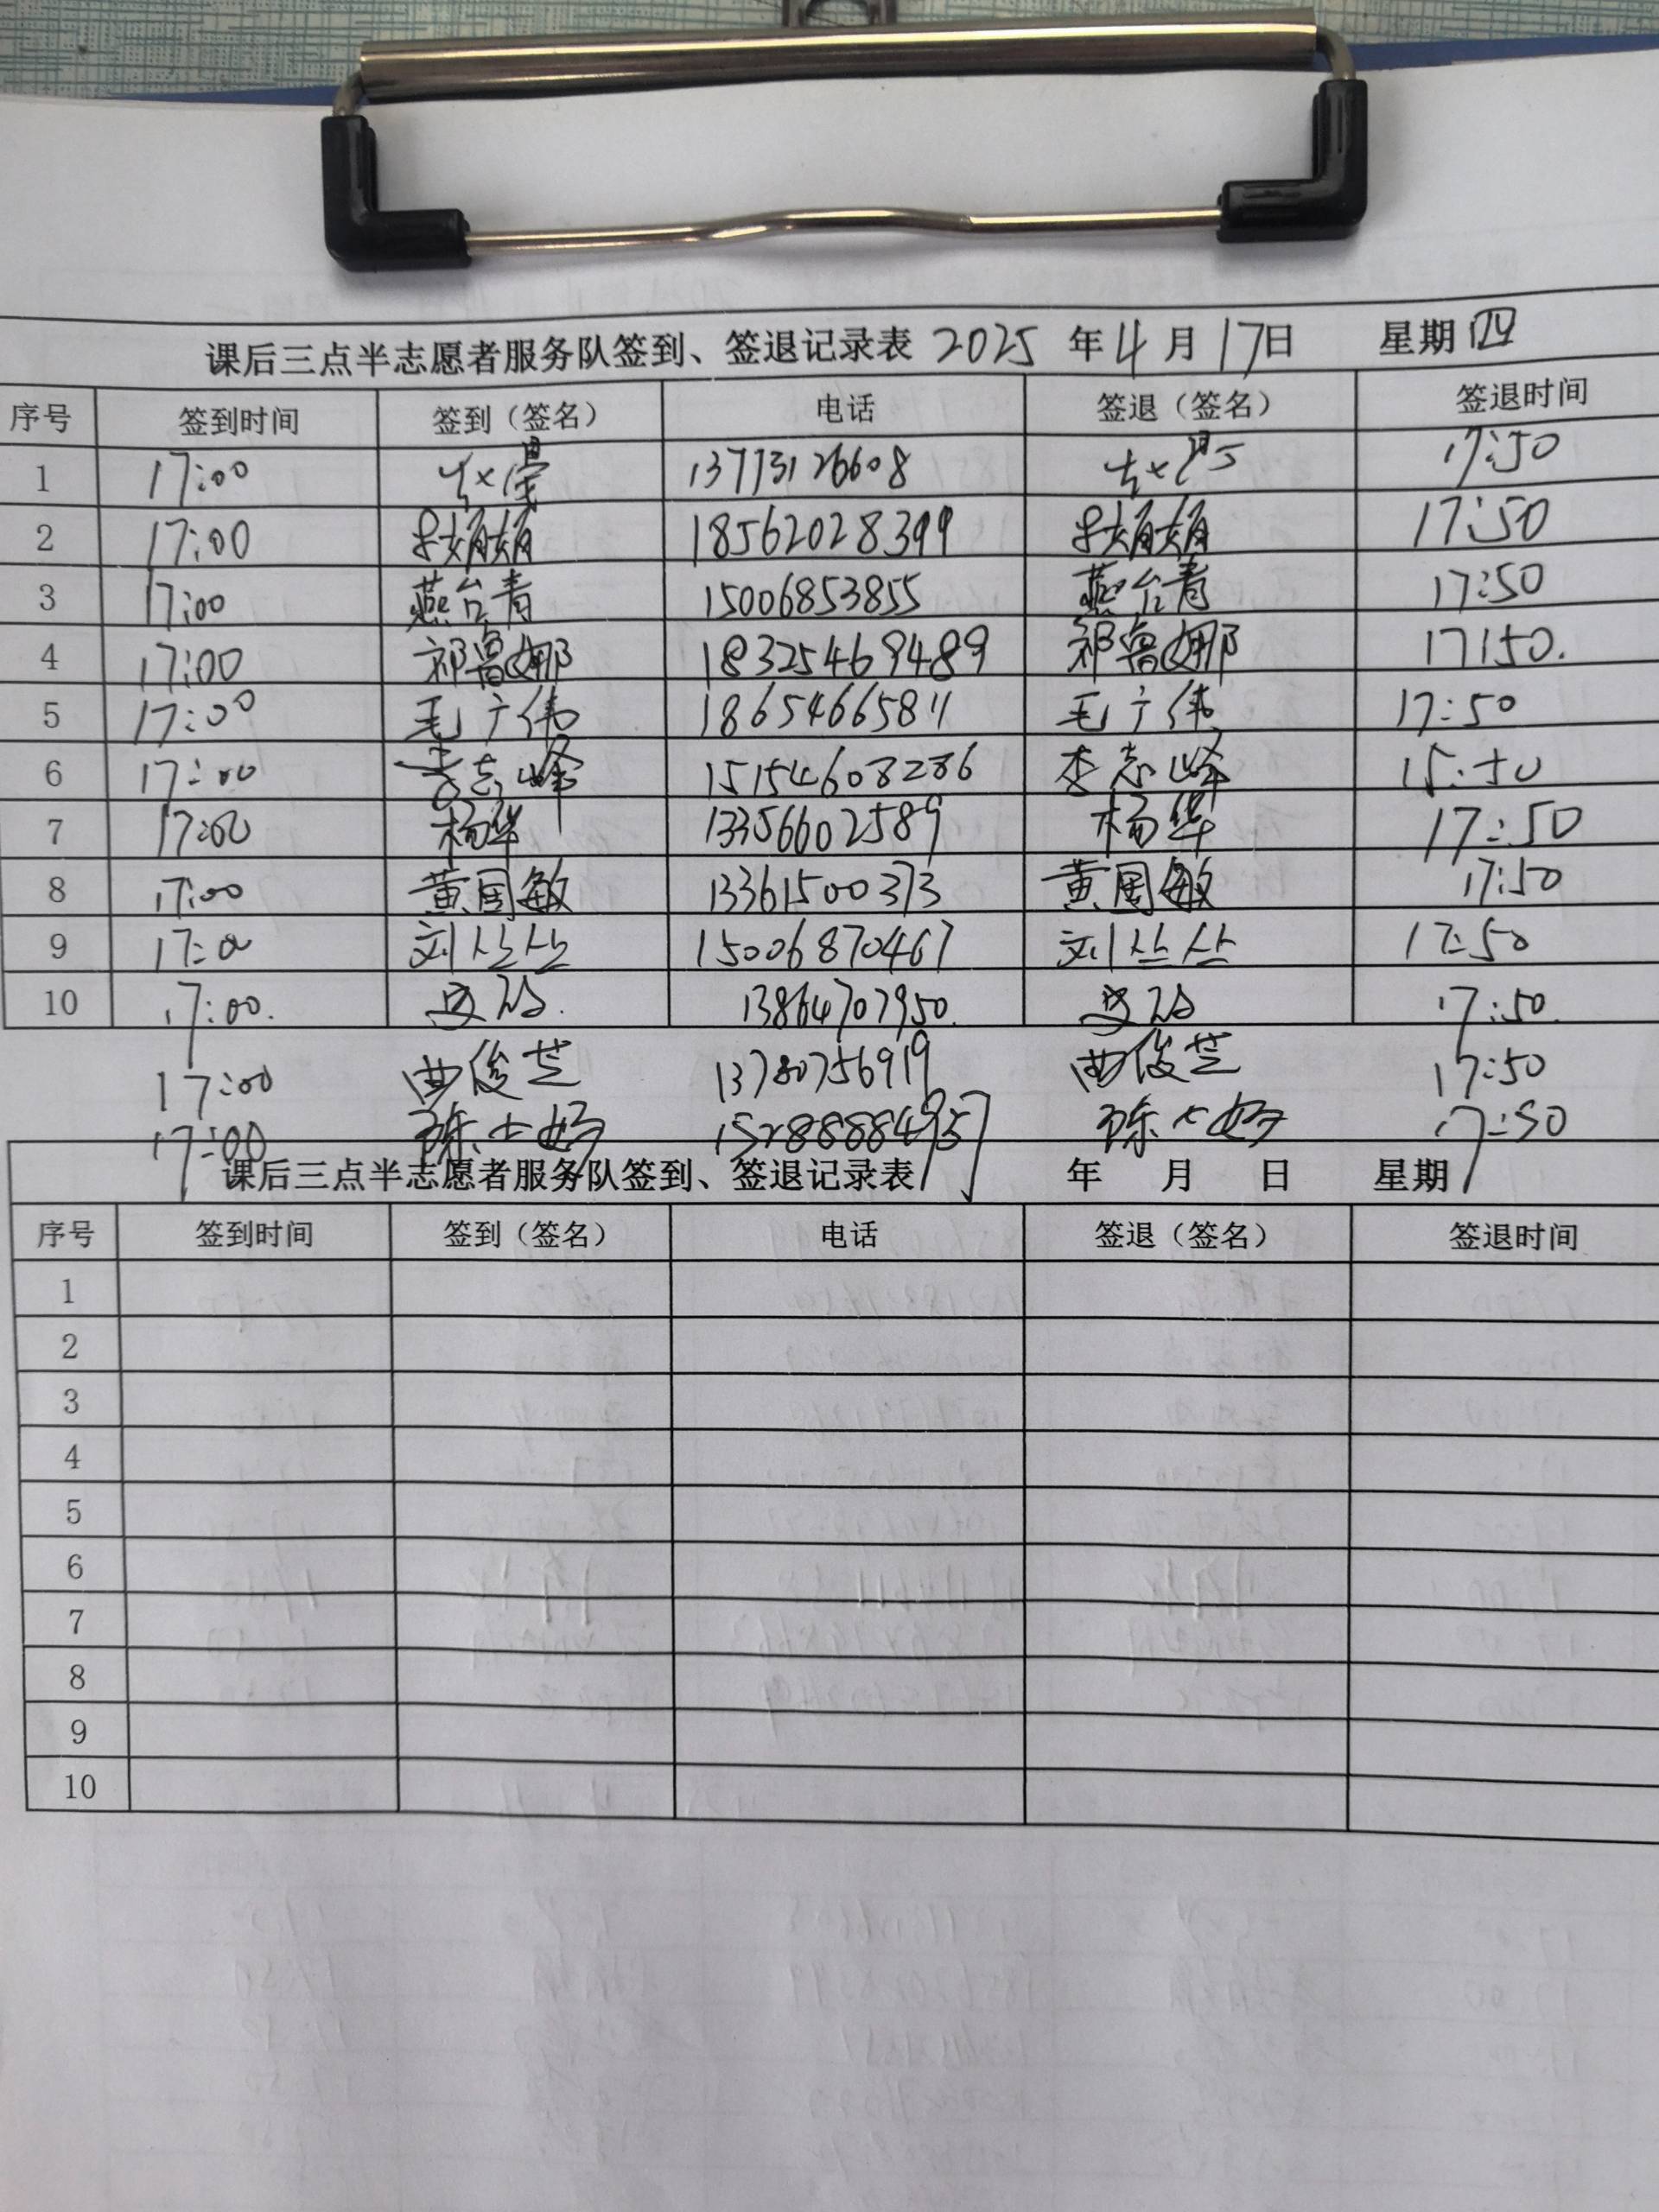 课后三点半志愿者服务队签到、签退记录表 2025 年 4 月 17日 星期 四
序号 签到时间 签到（签名） 电话 签退（签名） 签退时间
1 17:00 13773126608 17:50
2 17:00 娟娟 18562028399 娟娟 17:50
3 17:00 燕台青 15006853855 燕台青 17:50
4 17:00 祁鲁娜 18325469489 祁鲁娜 17:50.
5 17:00 毛广伟 18654665811 毛广伟 17:50
6 17:00 李志峰 15154608286 李志峰 15:50
7 17:00 杨华 13356602589 杨华 17:50
8 17:00 黄国敏 13361500373 黄国敏 17:50
9 17:00 刘丛丛 15006870467 刘丛丛 17:50
10 17:00. 13864707950. 17:50.
17:00 曲俊芝 13780756919 曲俊芝 17:50
17:00 15288884957 17:50
课后三点半志愿者服务队签到、签退记录表 年 月 日 星期
序号 签到时间 签到（签名） 电话 签退（签名） 签退时间
1
2
3
4
5
6
7
8
9
10